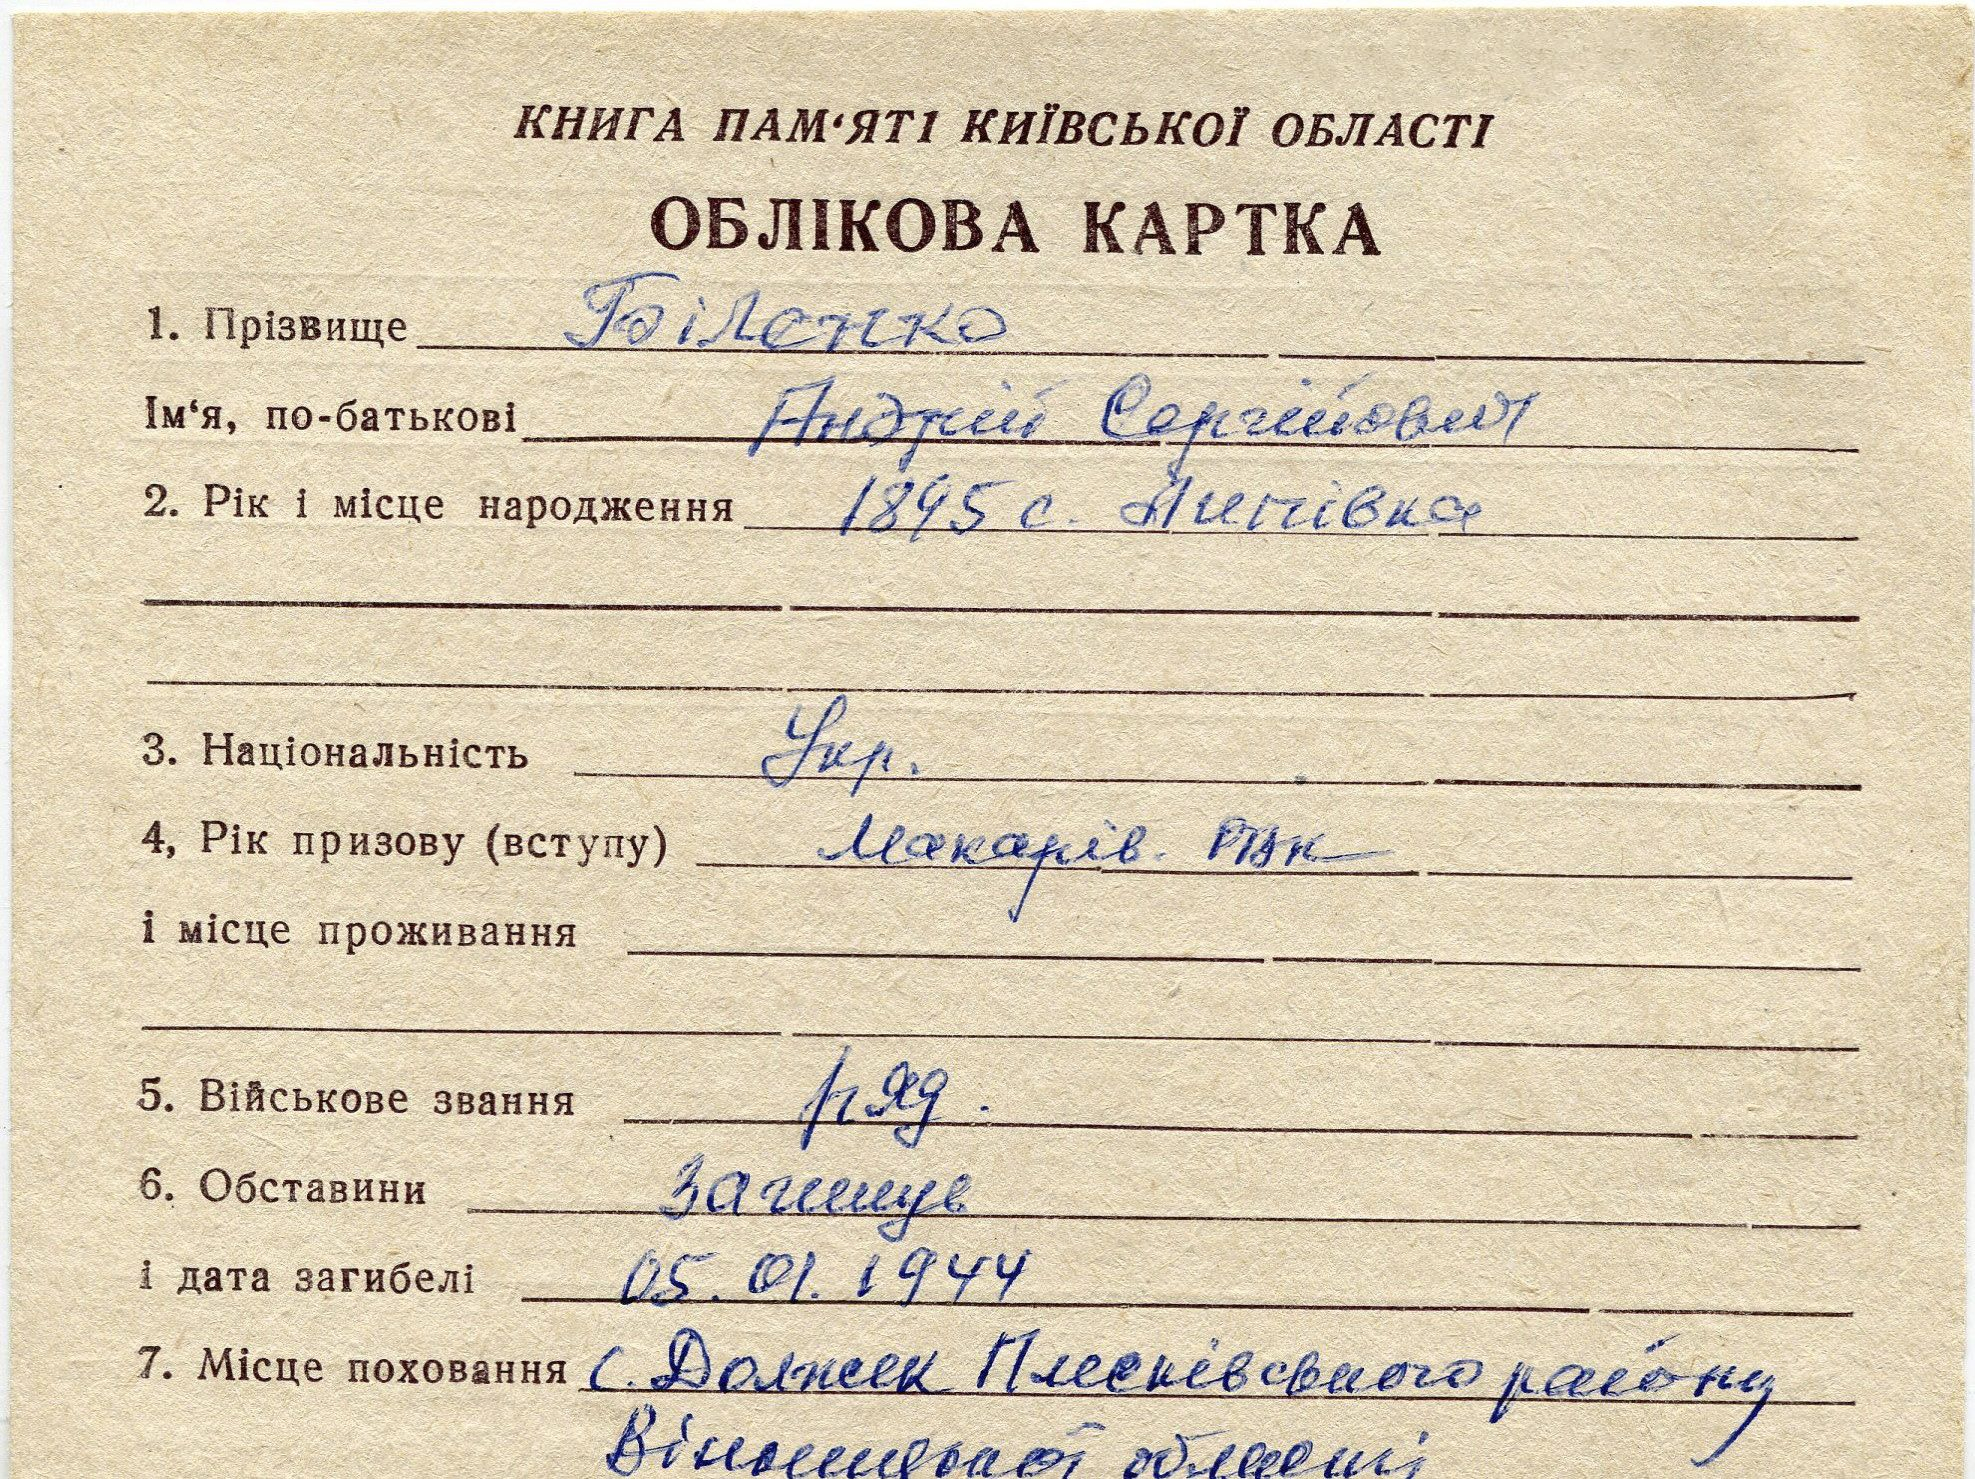 КНИГА ПАМ‘ЯТІ КИЇВСЬКОЇ ОБЛАСТІ
ОБЛІКОВА КАРТКА
1. Прізвище Біленко
Ім‘я, по-батькові Андрій Сергійович
2. Рік і місце народження 1895 с. Липівка
3. Національність Укр.
4, Рік призову (вступу) Макарів. РВК
і місце проживання
5. Військове звання ряд.
6. Обставини Загинув
і дата загибелі 05.01.1944
7. Місце поховання с. Должек Плесківського району
Вінницької області